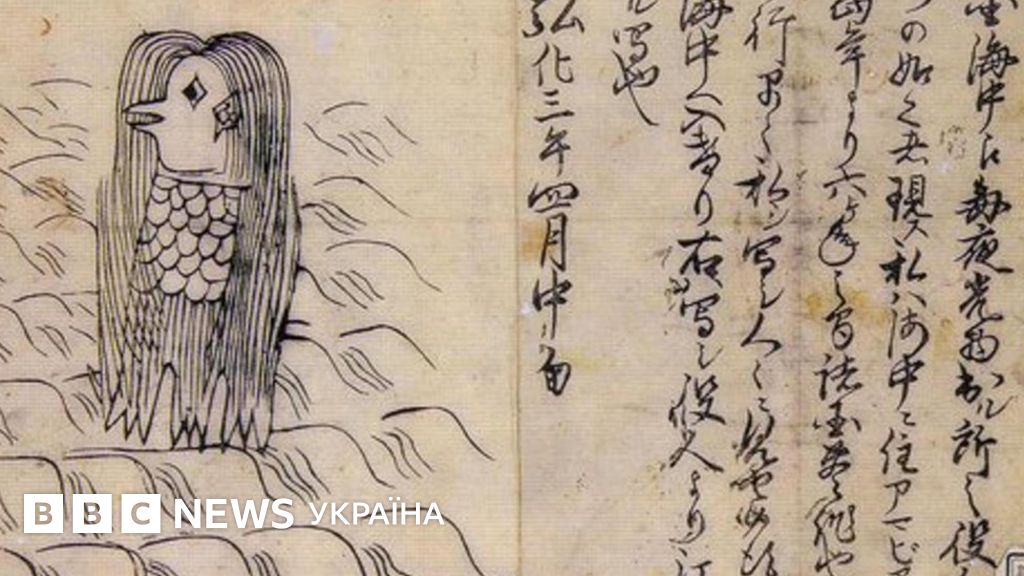 海中え毎夜光物出ル所之役
づの如く者現ス私ハ海中ニ住アマビ
当年より六ヶ年之間諸国豊作也
行早々私ヲ写シ人々ニ見せ候
海中へ入けり右写シ役人より江
ル写也
弘化三年四月中旬
BBC NEWS УКРАЇНА